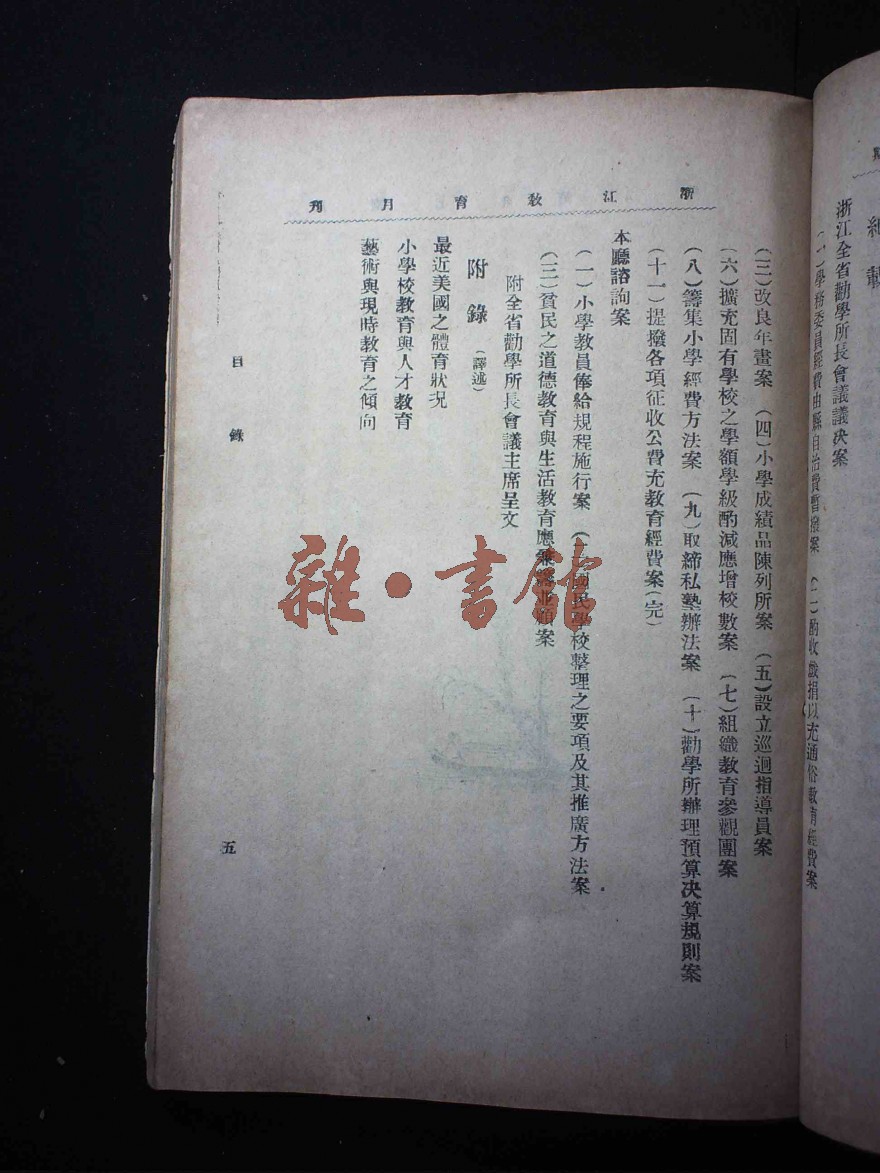 浙江全省勸學所長會議議决案
(一)學務委員經費由縣自治費暫撥案 (二)酌收戲捐以充通俗教育經費案
浙江教育月刊
(三)改良年畫案 (四)小學成績品陳列所案 (五)設立巡迴指導員案
(六)擴充固有學校之學額學級酌減應增校數案 (七)組織教育參觀團案
(八)籌集小學經費方法案 (九)取締私塾辦法案 (十)勸學所辦理預算决算規則案
(十一)提撥各項征收公費充教育經費案(完)
本廳諮詢案
(一)小學教員俸給規程施行案 (二)國民學校整理之要項及其推廣方法案
(三)貧民之道德教育與生活教育應兼籌並顧案
附全省勸學所長會議主席呈文
附錄(譯述)
最近美國之體育狀况
小學校教育與人才教育
藝術與現時教育之傾向
目錄
五
雜·書館